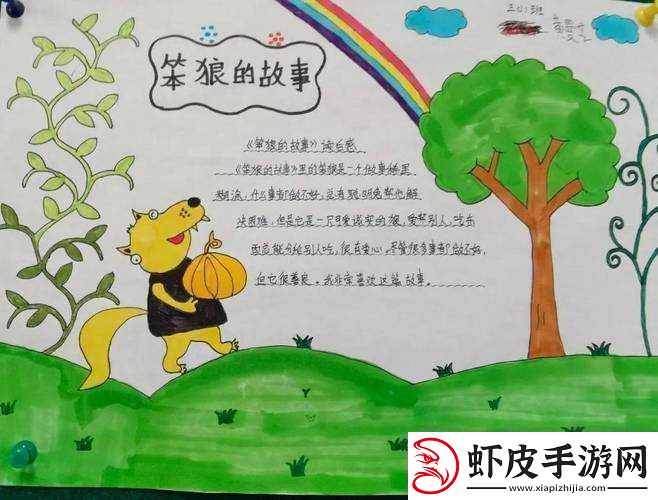 三(1)班
笨狼的故事
《笨狼的故事》读后感
《笨狼的故事》里的笨狼是一个做事糊里
糊涂,什么事都做不好,总有聪明兔帮他解
决困难,但是它是一只可爱诚实的狼,爱帮别人,吃东
西总能分给别人吃,很有爱心。尽管很多事都做不好,
但它很善良。我非常喜欢这篇故事。
虾皮手游网
www.xiapizhijia.com